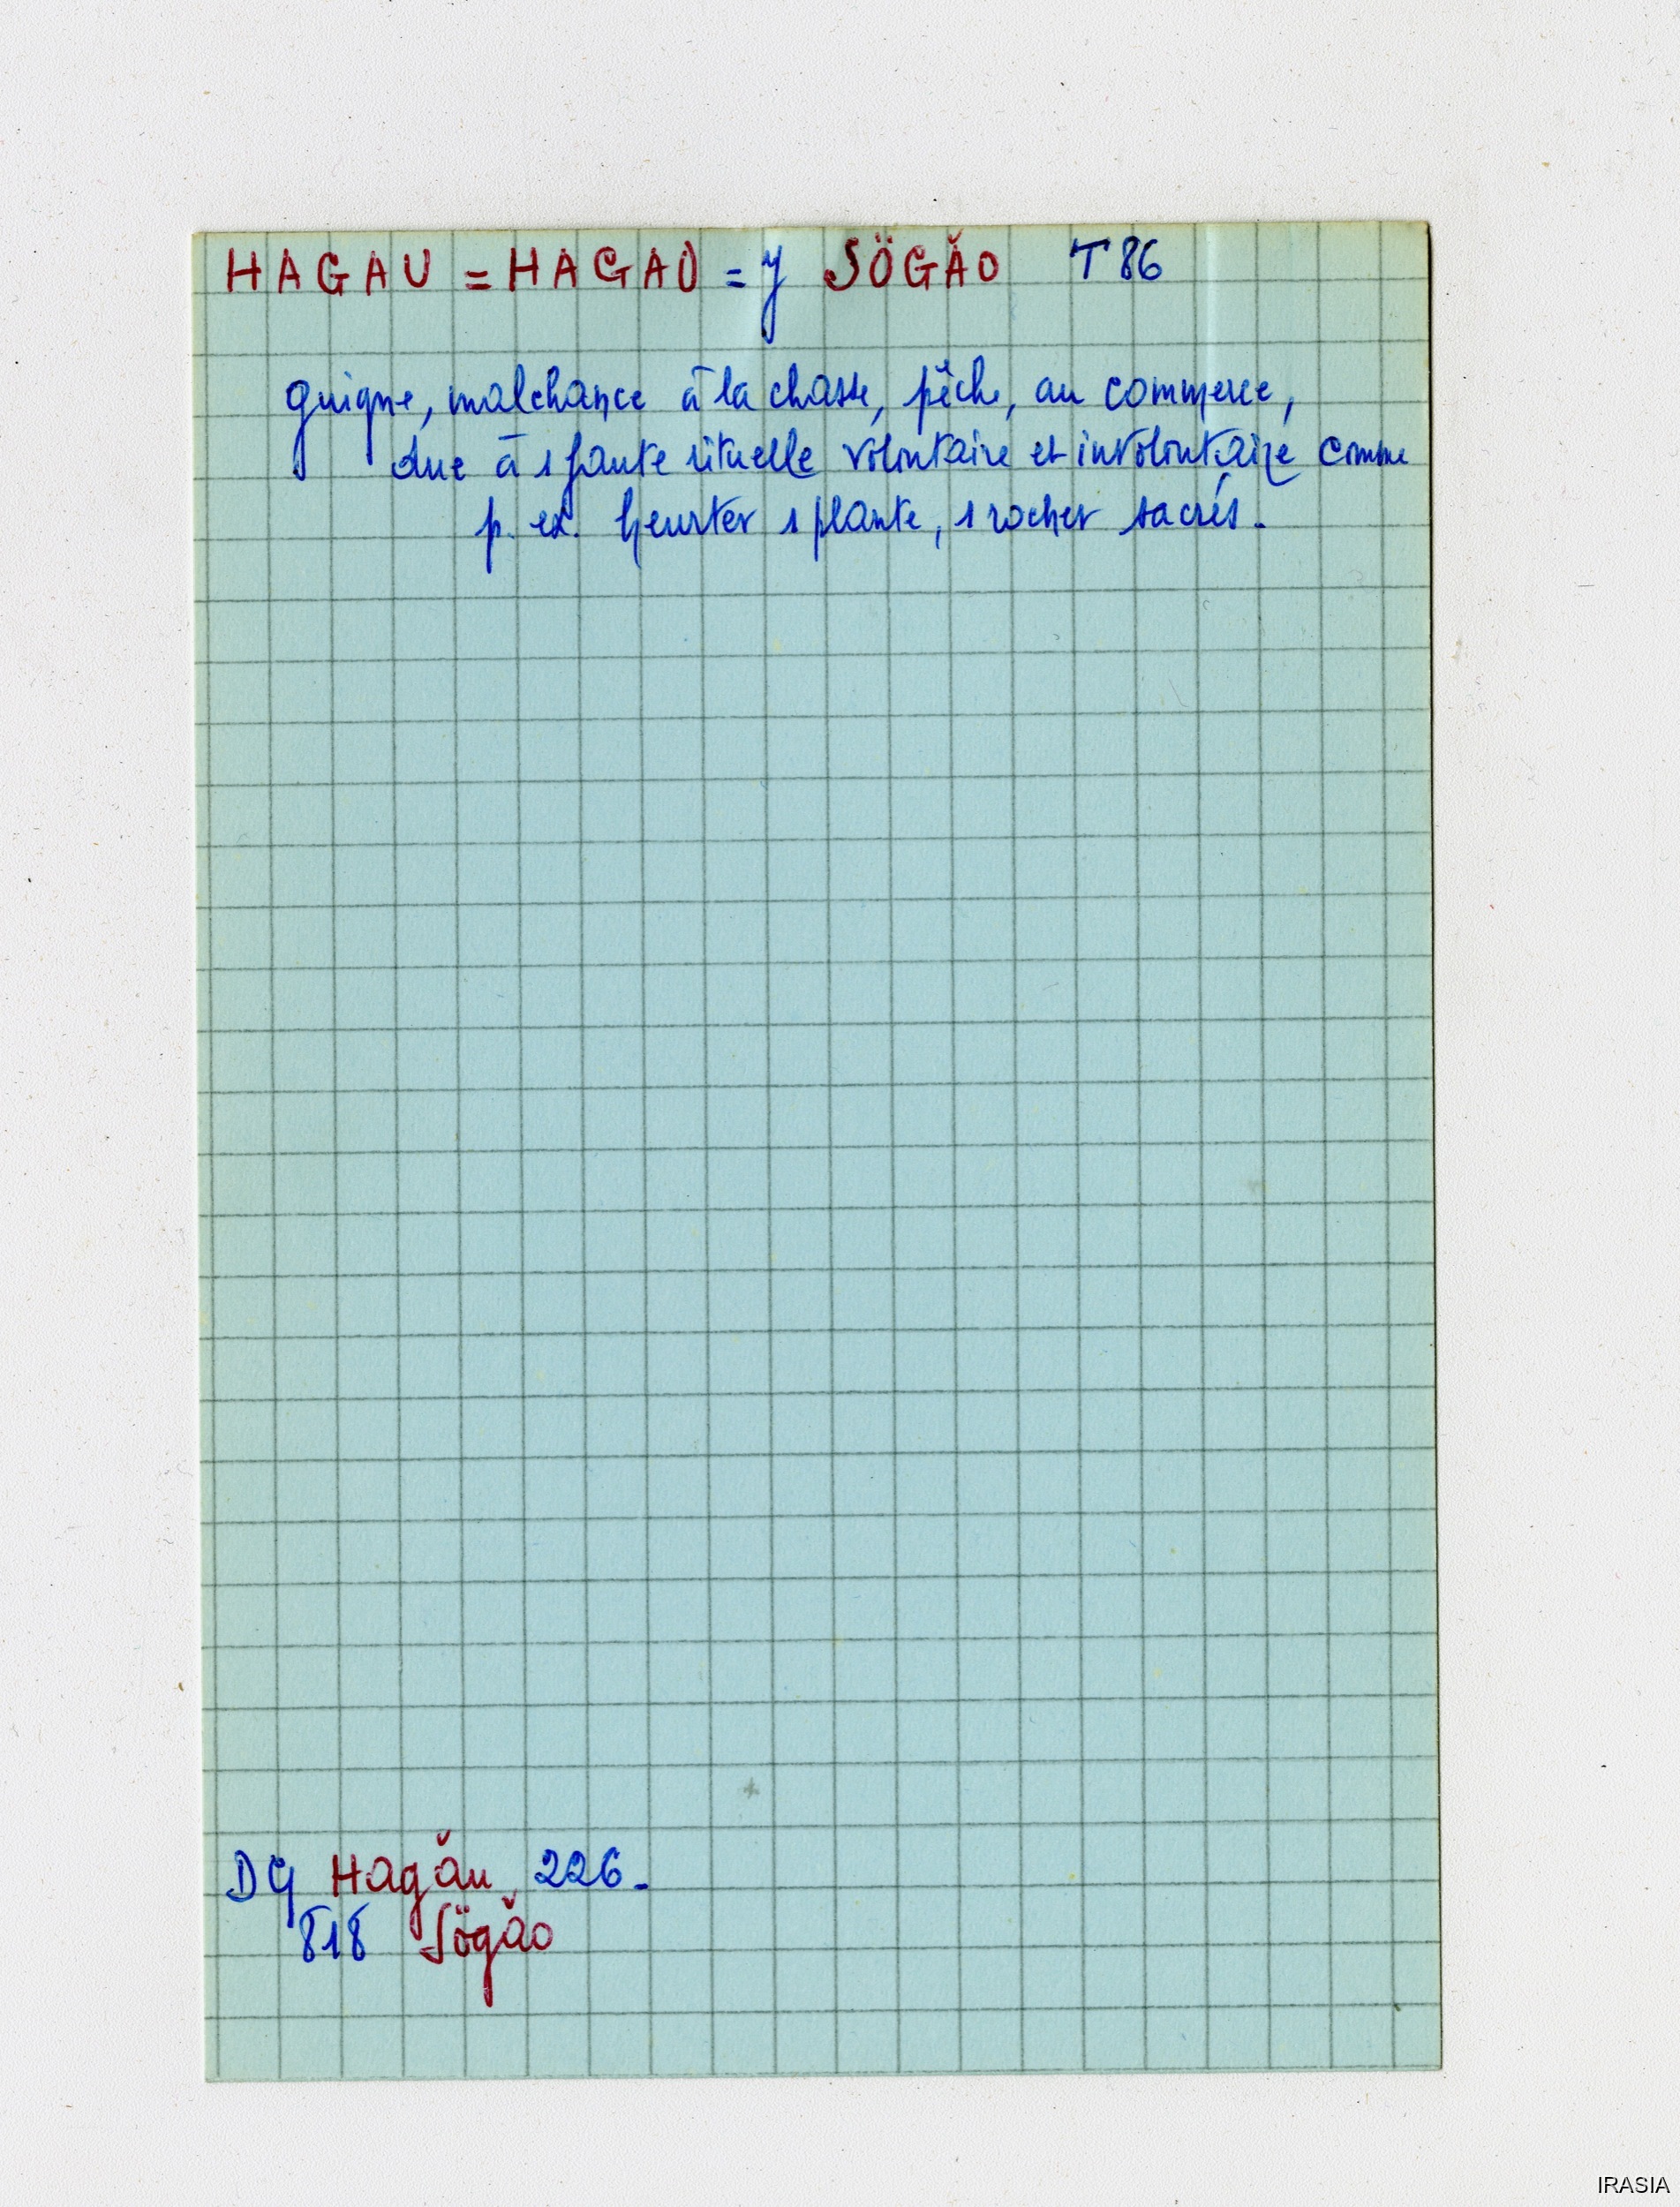 HAGAU = HAGAO = y SÖGĂO T 86
guigne, malchance à la chasse, pêche, au commerce,
due à 1 faute rituelle volontaire et involontaire comme
p. ex. heurter 1 plante, 1 rocher sacrés.
DG Hagău 226.
818 Sögăo
IRASIA